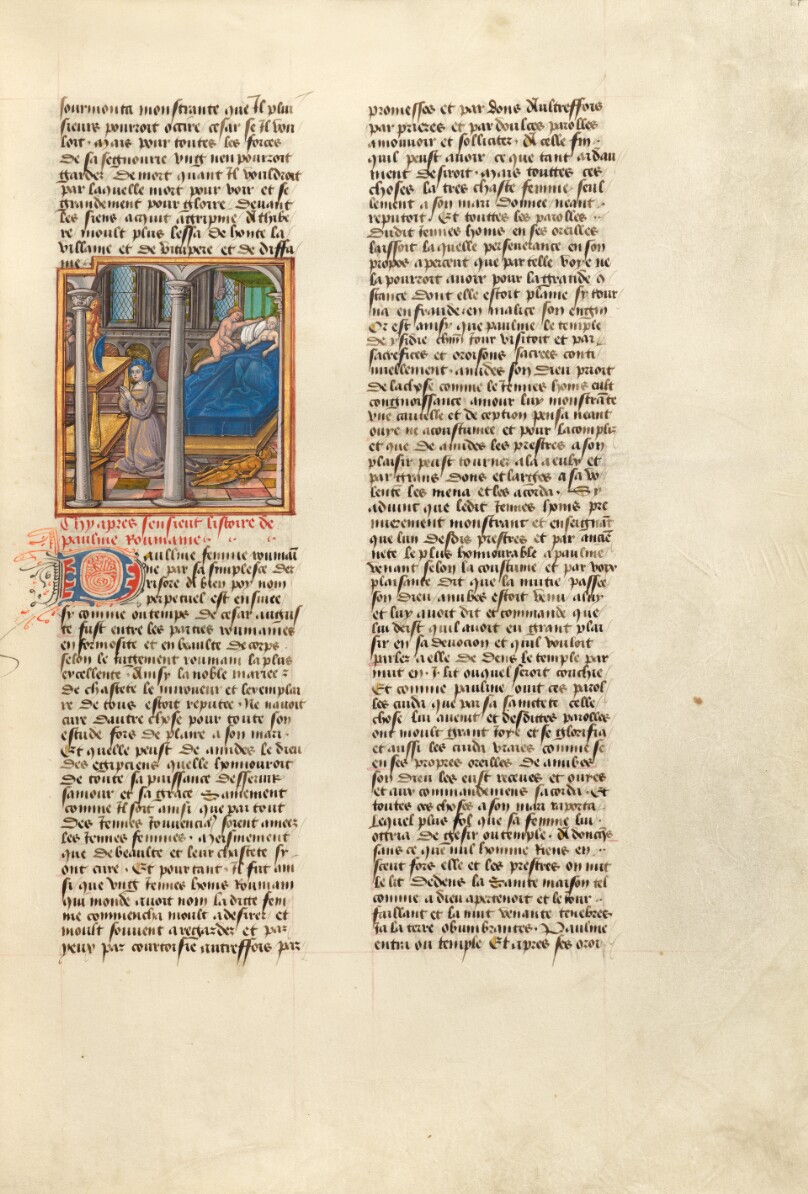 sourmonta monstrante que Il plu
sieurs pourroit occire cesar se Il vou
loit. Mais pour toutes les forces
de sa segnourie ung neu pourroit
garder de mort quant Il vouldroit
par laquelle mort pour voir et se
grandement pour gloire. Devant
les siens acquit agripine A thibe
re moult plus lessa de honte la
villanie et de vitupere et de diffa
me
Chy apres sensient listoire de
pauline Roummaine
Paulline femme roumai
ne par sa simplesse de
risore et bien poy nom
perpetuel est ensuite
sy comme ou temps de cesar augus
te fust entre les parties roumaines
en formesite et en beaulte de corps
selon le jugement roumain la plus
excellente. Ainsy la noble mariee
de chastete le mirouer et lexemplai
re de tous estoit reputee. Ne navoit
cure dautre chose pour toute son
estude fors de plaire a son mari.
Et quelle peust de anubes le dieu
des egipciens quelle honnouroit
de toute sa puissance desservir
samour et sa grace
comme Il soit ainsi que par tout
des Jennes Jouvencia soient amees
les Jennes femmes. Meismement
que de beaulte et leur chastete sy
ont cure. Et pour tant. Il fut ain
si que ung Jennes homs Roumain
qui monde avoit nom la dicte fem
me commencha moult a desirer et
moult souvent a regarder et par
yeux par courtoisie autreffois par
promesses et par dons Aultreffois
par prieres et par doulces parolles
amouvoir et solliciter. A celle fin
quil peust avoir ce que tant ardan
ment desiroit. Mais touttes ces
choses la tres chaste femme seul
lement a son mari donnee neant
reputoit. Et touttes les parolles
dudit Jennes homs en ses oreilles
laissoit laquelle perseverance en son
propos apercent que par telle voye ne
la pourroit avoir pour la grande
stance dont elle estoit plaine sy tour
na en fraude en malice son engin
Or est ainsy que pauline le temple
de ysidre chun Jour visitoit et par
sacrefices et oroisons sacrees conti
nuellement anubes son dieu prioit
de la chose comme le Jennes homs eust
congnoissance amour luy monstrante
une cautelle et deception pensa neant
ouye ne acoustumee et pour lacomplir
et que de anubes les prestres a son
plaisir peust tourner ala et
par grans dons et larges a sa vo
lente les mena et les acorda. Sy
advint que ledit Jennes homs pre
mierement monstrant et enseignant
que lun desdis prestres et par ancie
nete le plus honnourable a pauline
venant selon la coustume et par voix
plaisante dit que la nuitie passee
son dieu anubes estoit venu a luy
et luy avoit dit et commande que
lui deist quil avoit eu grant plai
sir en sa devocion et quil vouloit
parler a elle de dens le temple par
nuit en I lit ouquel seroit couchie
Et comme pauline ouit ces parol
les cuida que par sa saintete celle
chose lui avenit et desdittes parolles
ont moult grant joye et se glorifia
et aussi les cuida vraies comme se
en ses propres oreilles de anubes
son dieu les eust receues et ouyes
et aux commandemens sacorda. Et
toutes ces choses a son mari raporta
Lequel plus fol que sa femme lui
ottria de gesir ou temple. A doncqs
sans ce que nul homme Riens en
sceut fors elle et les prestres on mit
le lit dedens la sainte maison tel
comme a dieu apertenoit et le jour
faillant et la nuit venante tenebres
Ja la terre obumbrantes. Pauline
entra ou temple Et apres ses oroi